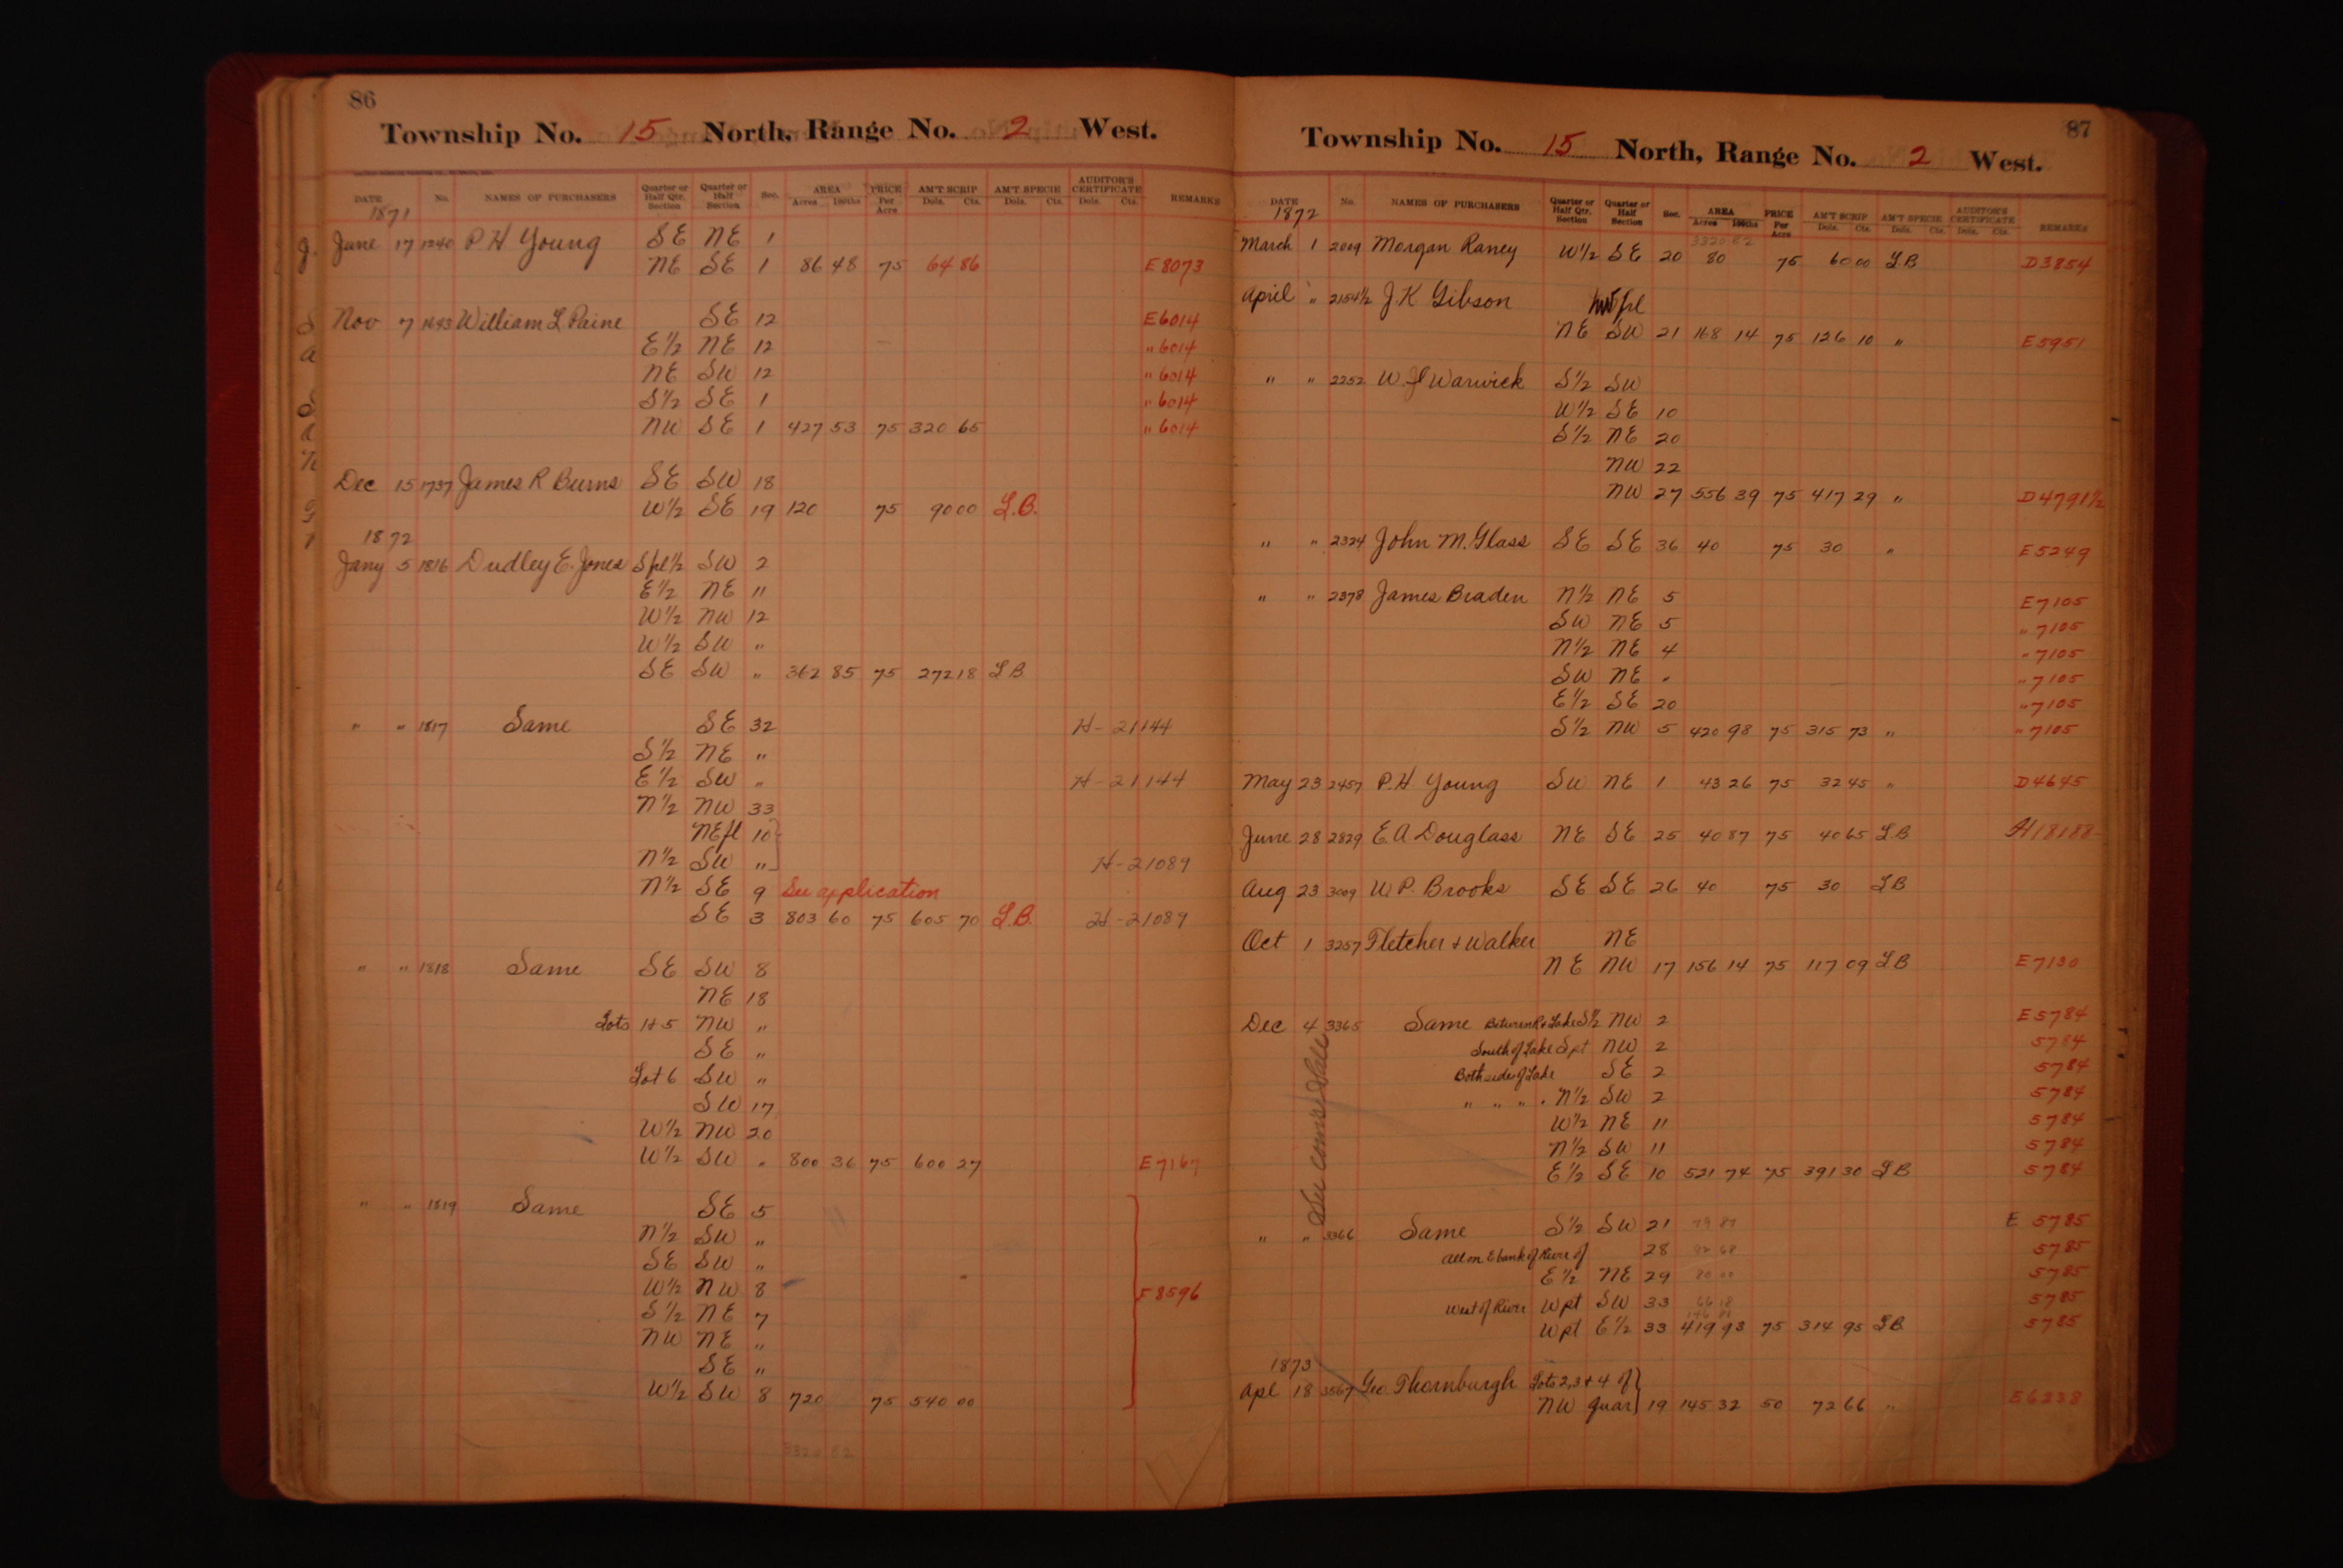 86
Township No. 15 North, Range No. 2 West.
DATE No. NAMES OF PURCHASERS Quarter or Half Qtr. Section Quarter or Half Section Sec. AREA Acres 100ths PRICE Per Acre AM'T SCRIP Dols. Cts. AM'T SPECIE Dols. Cts. AUDITOR'S CERTIFICATE Dols. Cts. REMARKS
1871
June 17 1240 P H Young SE NE 1
NE SE 1 86 48 75 64 86 E 8073
Nov 7 1643 William L Paine SE 12 E 6014
E½ NE 12 " 6014
NE SW 12 " 6014
S½ SE 1 " 6014
NW SE 1 427 53 75 320 65 " 6014
Dec 15 1737 James R Burns SE SW 18
W½ SE 19 120 75 90 00 L.B.
1872
Jany 5 1816 Dudley E. Jones Sfrl½ SW 2
E½ NE 11
W½ NW 12
W½ SW "
SE SW " 362 85 75 272 18 L B
" " 1817 Same SE 32 H-21144
S½ NE "
E½ SW " H-21144
N½ NW 33
NE fl 10
N½ SW " H-21089
N½ SE 9 See application
SE 3 803 60 75 605 70 L.B. H-21089
" " 1818 Same SE SW 8
NE 18
Lots 1+5 NW "
SE "
Lot 6 SW "
SW 17
W½ NW 20
W½ SW " 800 36 75 600 27 E 7167
" " 1819 Same SE 5
N½ SW "
SE SW "
W½ NW 8 F 8596
S½ NE 7
NW NE "
SE "
W½ SW 8 720 75 540 00
3320 82
87
Township No. 15 North, Range No. 2 West.
DATE No. NAMES OF PURCHASERS Quarter or Half Qtr. Section Quarter or Half Section Sec. AREA Acres 100ths PRICE Per Acre AM'T SCRIP Dols. Cts. AM'T SPECIE Dols. Cts. AUDITOR'S CERTIFICATE Dols. Cts. REMARKS
1872
3320 82
March 1 2009 Morgan Raney W½ SE 20 80 75 60 00 L B D 3854
April " 2154½ J. K Gibson frl
NE SW 21 168 14 75 126 10 " E 5951
" " 2252 W. Warwick S½ SW
W½ SE 10
S½ NE 20
NW 22
NW 27 556 39 75 417 29 " D 4791½
" " 2324 John M. Glass SE SE 36 40 75 30 " E 5249
" " 2378 James Braden N½ NE 5 E 7105
SW NE 5 " 7105
N½ NE 4 " 7105
SW NE " " 7105
E½ SE 20 " 7105
S½ NW 5 420 98 75 315 73 " " 7105
May 23 2457 P. H Young SW NE 1 43 26 75 32 45 " D 4645
June 28 2829 E A Douglass NE SE 25 40 87 75 40 65 L B H 18188
Aug 23 3009 W P. Brooks SE SE 26 40 75 30 L B
Oct 1 3257 Fletcher + Walker NE
NE NW 17 156 14 75 117 09 L B E 7130
Dec 4 3365 Same Between R + Lake S½ NW 2 E 5784
South of Lake Spt NW 2 5784
Both sides of Lake SE 2 5784
" " " " N½ SW 2 5784
W½ NE 11 5784
N½ SW 11 5784
E½ SE 10 521 74 75 391 30 L B 5784
" " 3366 Same S½ SW 21 E 5785
All on E bank of River of 28 5785
E½ NE 29 80 00 5785
West of River Wpt SW 33 66 18 5785
Wpt E½ 33 419 93 75 314 95 L B 5785
1873
Apl 18 3567 Geo. Thornburgh Lots 2, 3 + 4 of
NW quar 19 145 32 50 72 66 " E 6238